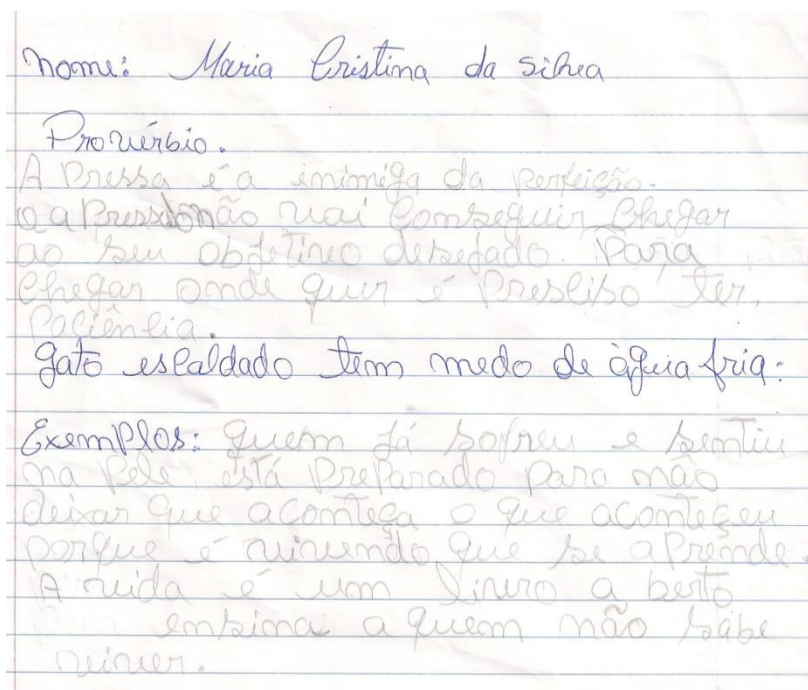 nome: Maria Cristina da Silva
Provérbio.
A Pressa é a inimiga da perfeição.
a Pressa não vai Conseguir Chegar
ao seu objetivo desejado. Para
Chegar onde quer é Presciso ter,
Paciência.
gato escaldado tem medo de àguia fria:
Exemplos: quem já sofreu e sentiu
na Pele está Preparado para não
deixar que aconteça o que aconteçeu
porque é vivendo que se aPrende.
A vida é um livro a berto
ensina a quem não sabe
viver.